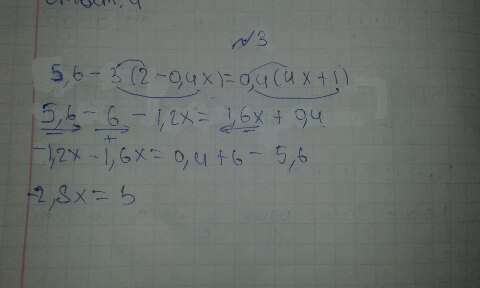 №3
5,6 - 3(2 - 0,4x) = 0,4(4x + 1)
5,6 - 6 - 1,2x = 1,6x + 0,4
+
-1,2x - 1,6x = 0,4 + 6 - 5,6
-2,8x = 5